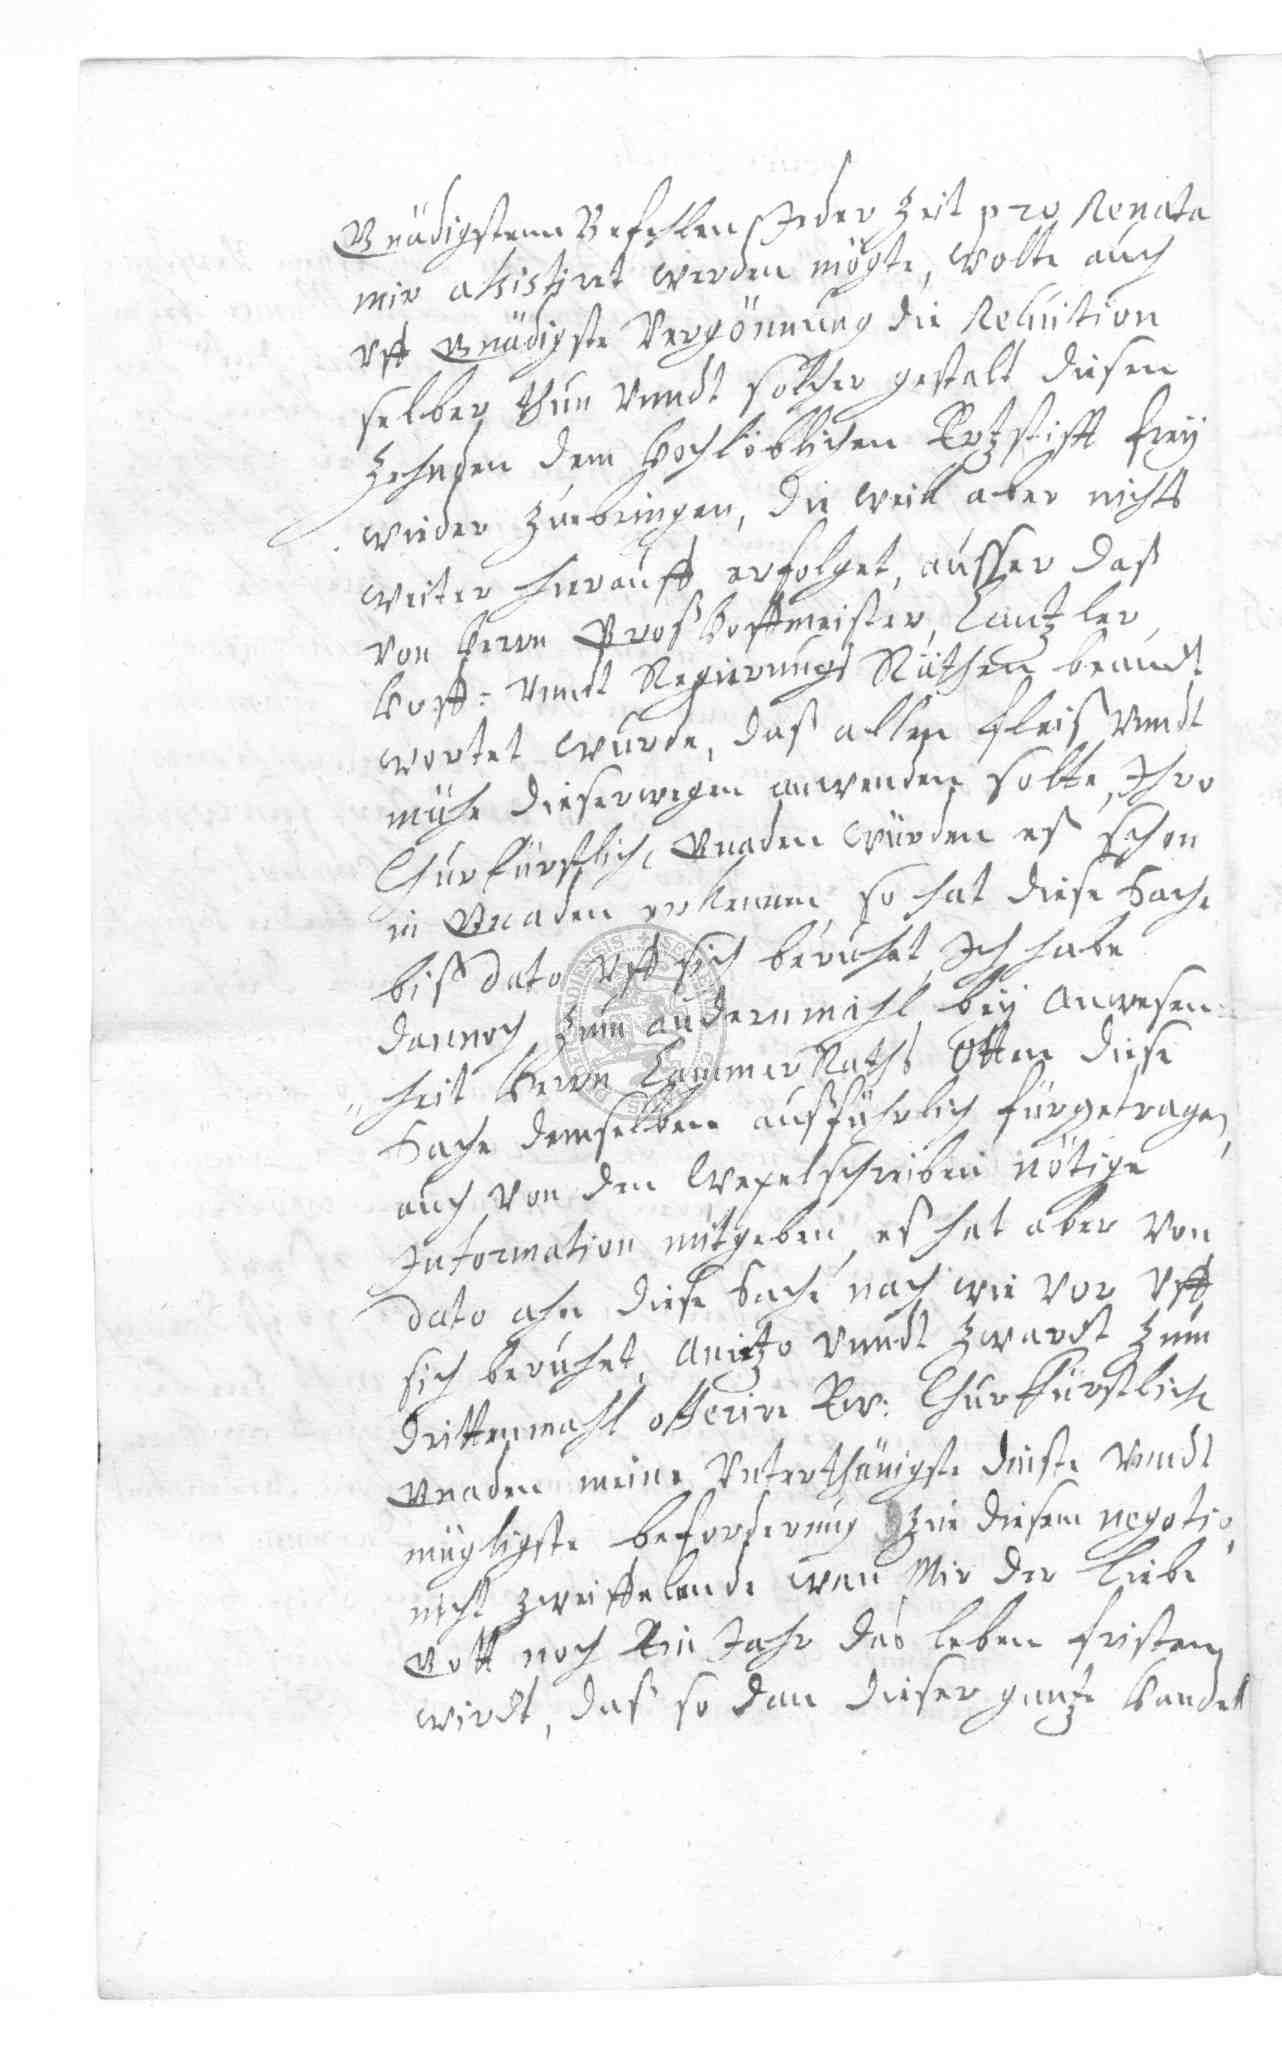 Gnädigstenn Befehlen Jeder Zeit pro Renata
mir assistiret werden mögte, wolte auch
Uff Gnädigste Vergönnung die Reluition
selber thun Unndt solcher gestalt diesen
Zehnden dem Hochlöblichen Ertzstifft frey
wieder zuebringen, die weill aber nichts
weiter hierauff erfolget, ausser daß
von Herrn Großhoffmeister, Cantzler,
Hoff- Unndt Regierungs Räthen beandt
wortet wurde, daß allen fleis Unndt
mühe dieserwegen anwenden solte, Ihro
Churfürstliche Gnaden würden eß schon
in Gnaden erkennen, so hat diese Sache
biß dato Uff sich beruhet, Ich habe
dannoch zum andernmahl bey Anwesen-
heit Herrn Cammer Raths Otten diese
Sache demselben außführlich fürgetragen,
auch von den Wexelschreiben nötige
Information mitgeben, eß hat aber von
dato ahn diese Sache nach wie vor Uff
sich beruhet, Anietzo Unndt zwardt zum
drittenmahl offerire Ew: Churfürstliche
Gnaden meine Unterthänigste dinste Unndt
mügligste beforderung zu diesem negotio,
nicht zweiffelende wan Mir der liebe
Gott noch Ein Jahr das leben fristen
wirdt, daß so dan dieser gantze Handell